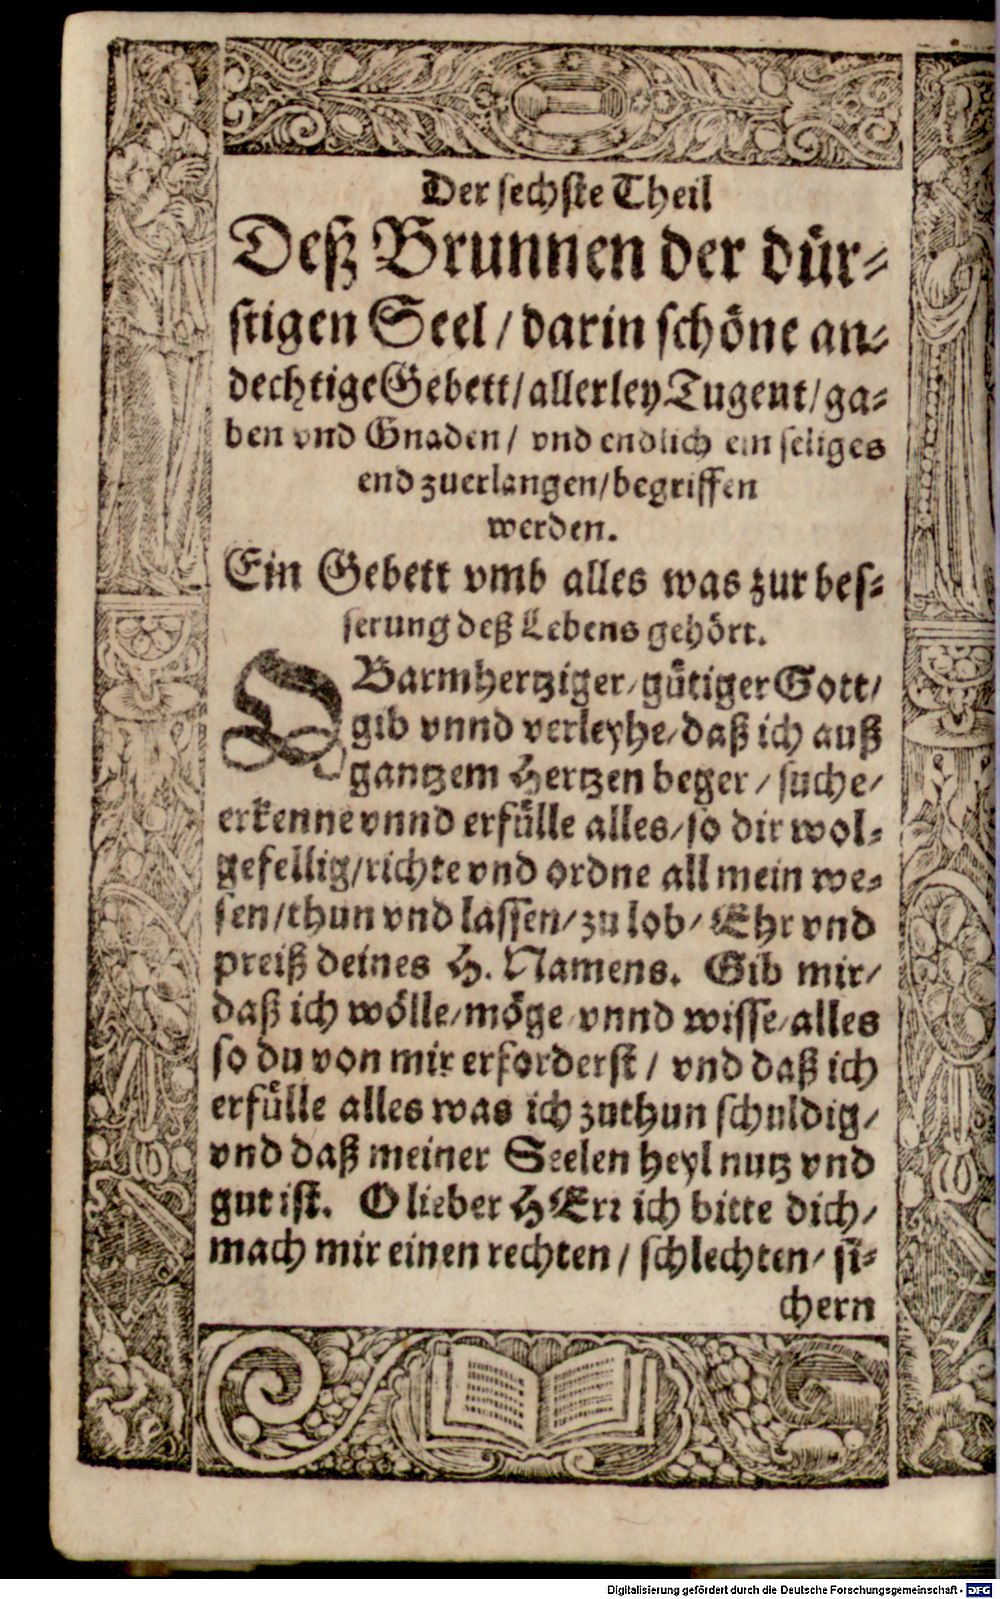 Der sechste Theil
Deß Brunnen der dür-
stigen Seel / darin schöne an-
dechtige Gebett / allerley Tugent / ga-
ben vnd Gnaden / vnd endlich ein seliges
end zuerlangen / begriffen
werden.
Ein Gebett vmb alles was zur bes-
serung deß Lebens gehört.
O Barmhertziger / gütiger Gott /
gib vnnd verleyhe / daß ich auß
gantzem Hertzen beger / suche /
erkenne vnnd erfülle alles / so dir wol-
gefellig / richte vnd ordne all mein we-
sen / thun vnd lassen / zu lob / Ehr vnd
preiß deines H. Namens. Gib mir /
daß ich wölle / möge vnnd wisse / alles
so du von mir erforderst / vnd daß ich
erfülle alles was ich zuthun schuldig /
vnd daß meiner Seelen heyl nutz vnd
gut ist. O lieber HErr ich bitte dich /
mach mir einen rechten / schlechten / si-
chern
Digitalisierung gefördert durch die Deutsche Forschungsgemeinschaft - DFG